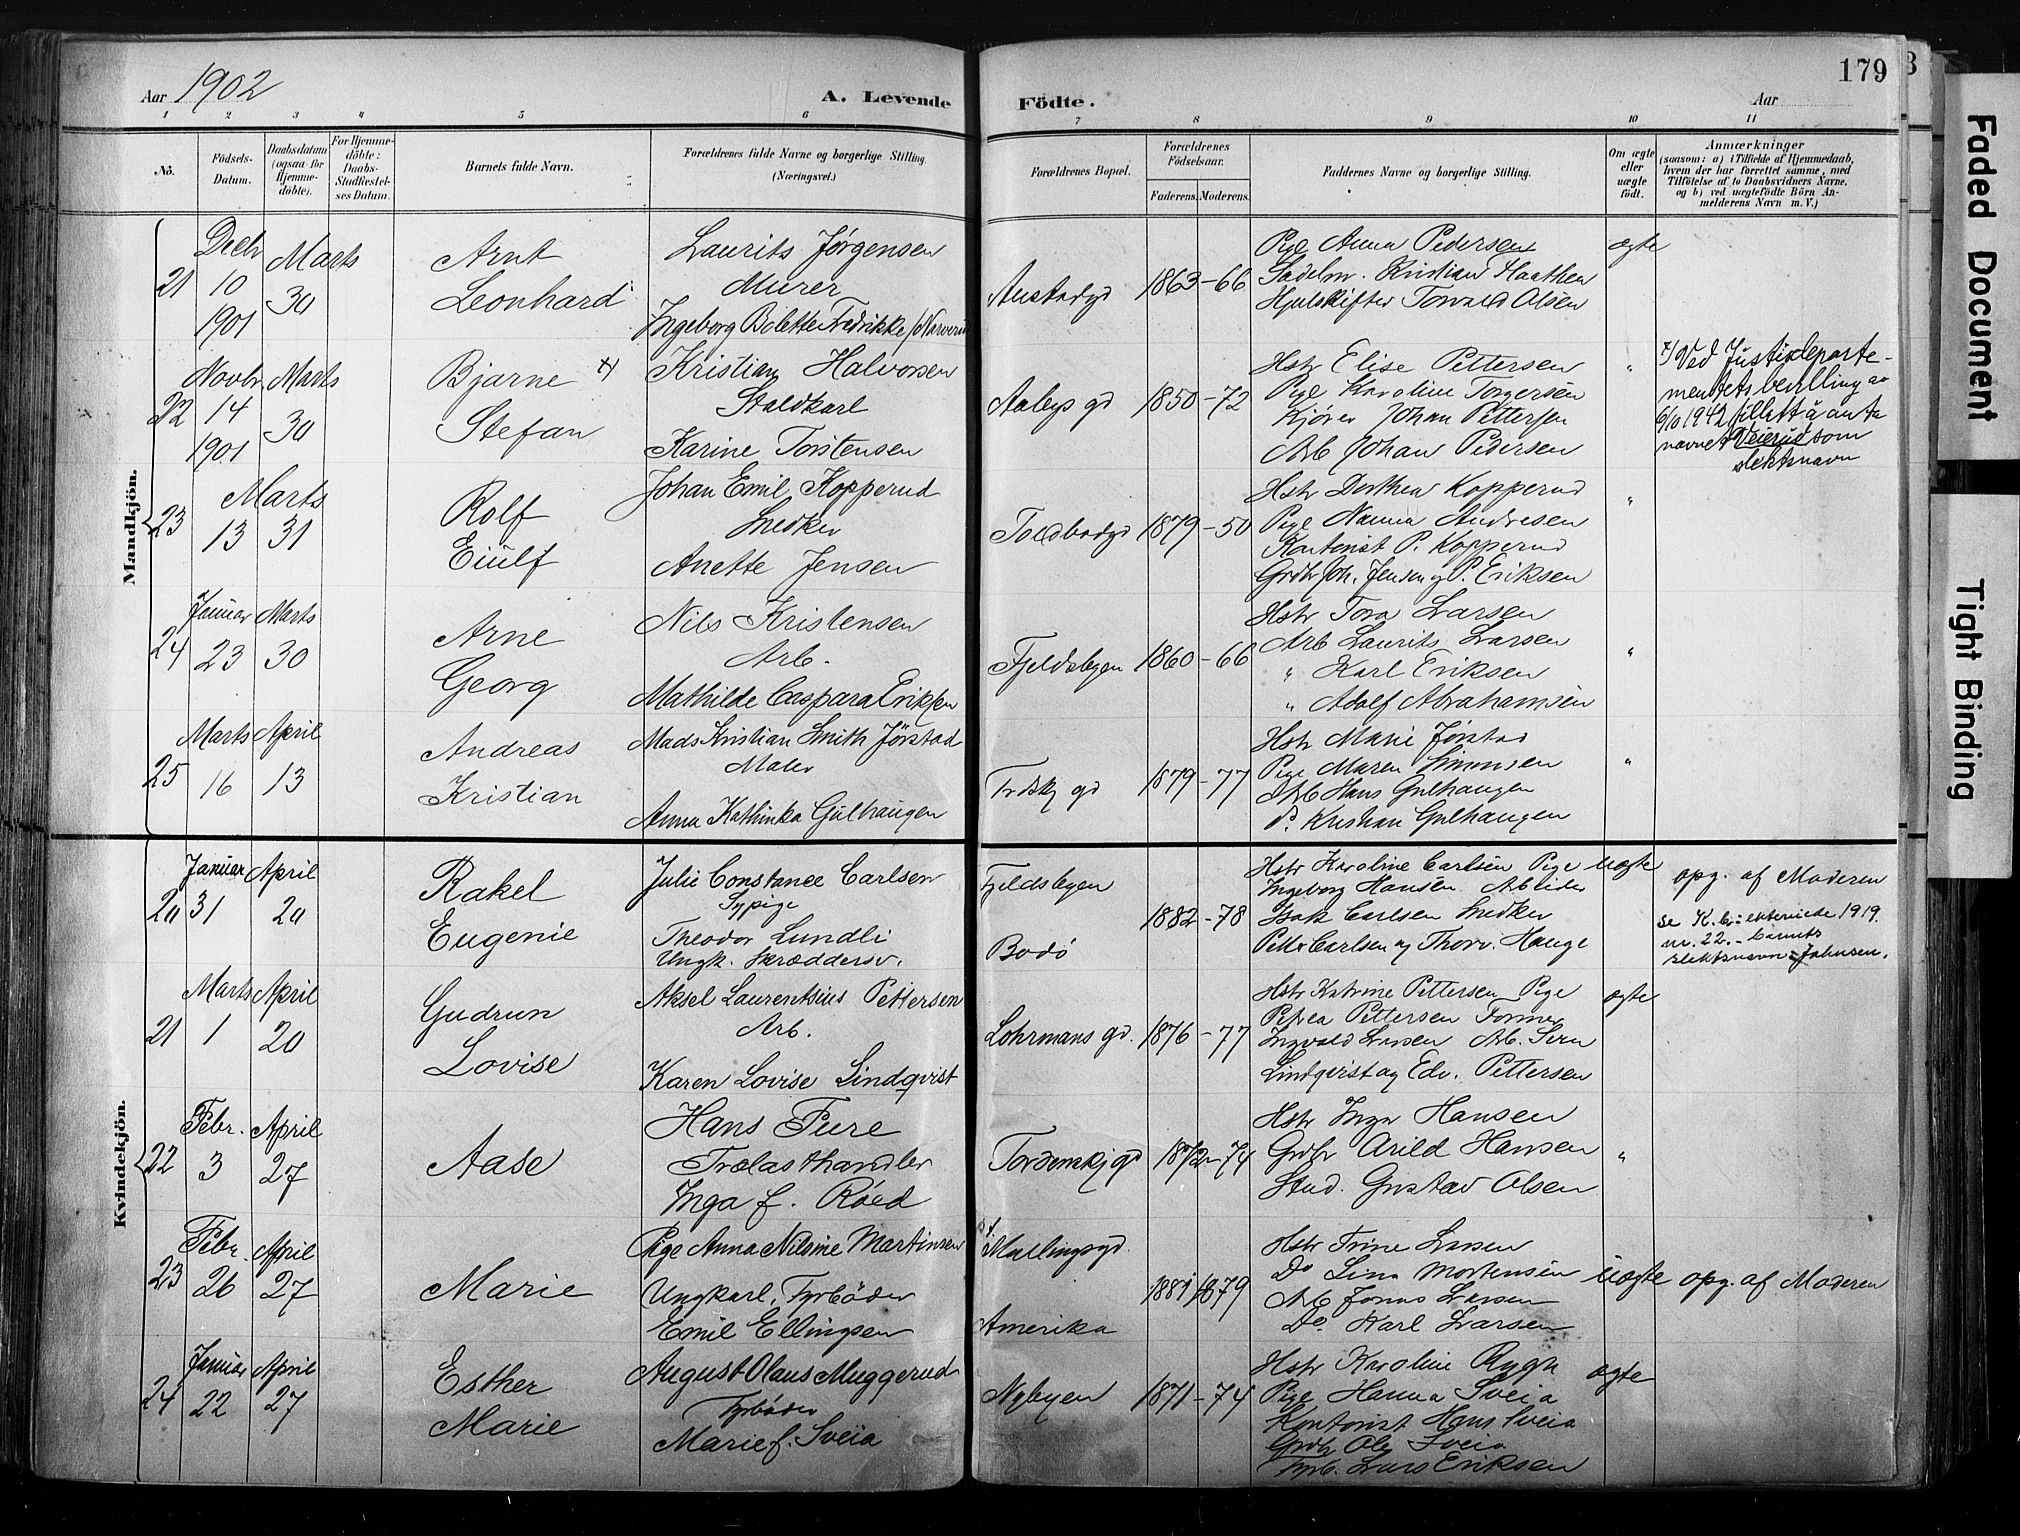 Aar 1902
A. Levende
Födte.
Aar
179
1 2 3 4 5 6 7 8 9 10 11
No.
Födsels-
Datum.
Daabsdatum
(ogsaa for
Hjemme-
döbte).
For Hjemme-
döbte:
Daabs-
Stadfæstel-
ses Datum.
Barnets fulde Navn.
Forældrenes fulde Navne og borgerlige Stilling.
(Næringsvei.)
Forældrenes Bopæl.
Forældrenes
Födselsaar.
Faderens. Moderens.
Faddernes Navne og borgerlige Stilling.
Om ægte
eller
uægte
født.
Anmærkninger
(saasom: a) i Tilfælde af Hjemmedaab,
hvem der har forrettet samme, med
Tilföielse af to Daabsvidners Navne,
og b) ved uægtefödte Börn An-
melderens Navn m. V.)
Mandkjön.
21
Decbr
10
1901
Marts
30
Arnt
Leonhard
Laurits Jørgensen
Murer
Ingeborg Bolette Fredrikke
1863-66
Pige Anna Pedersen
Sadelm. Kristian Haathen
Hjulskifter Torvald Olsen
ægte
22
Novbr
14
1901
Marts
30
Bjarne x)
Stefan
Kristian Halvorsen
Staldkarl
Karine Torstensen
Aabys gd
1850-72
Hstr Elise Pettersen
Pige Karoline Torgersen
Kjører Johan Pettersen
Arb Johan Pedersen
"
x) Ved Justisdeparte-
mentets bevilling av
6/10 1942 tillatt å anta
navnet Veierud som
slektsnavn
23
Marts
13
31
Rolf
Eiulf
Johan Emil Kopperud
Snedker
Anette Jensen
Toldbodgd
1879-50
Hstr Dorthea Kopperud
Pige Nanna Andresen
Kontorist P. Kopperud
Grdbr Joh. Jensen og P. Eriksen
"
24
Januar
23
Marts
30
Arne
Georg
Nils Kristensen
Arb.
Mathilde Caspara Eriksen
Fjeldsbyen
1860-66
Hstr Tora Larsen
Arb Laurits Larsen
" Karl Eriksen
" Adolf Abrahamsen
"
25
Marts
16
April
13
Andreas
Kristian
Mads Kristian Smith Jørstad
Maler
Anna Kathinka Gulhaugen
Trdskj gd
1879-77
Hstr Marie Jørstad
Pige Maren Simonsen
Arb Hans Gulhaugen
Do Kristian Gulhaugen
"
Kvindekjön.
20
Januar
31
April
20
Rakel
Eugenie
Julie Constance Carlsen
Sypige
Theodor Lundli
Ungk. Skræddersv.
Fjeldsbyen
Bodø
1882-78
Hstr Karoline Carlsen Pige
Ingeborg Hansen Arbeider
Isak Carlsen Snedker
Petter Carlsen og Thorv. Hauge
uægte
opg. af Moderen
se K.b. ekteviede 1919.
nr. 22. - barnets
slektsnavn: Johnsen.
21
Marts
1
April
20
Gudrun
Lovise
Aksel Laurentsius Pettersen
Arb.
Karen Lovise Lindqvist
Lohrmans gd.
1876-77
Hstr Katrine Pettersen Pige
Petrea Pettersen Former
Ingvald Larsen Arb. Sven
Lindqvist og Edv. Pettersen
ægte
22
Febr.
3
April
27
Aase
Hans Fure
Trælasthandler
Inga f. Røed
Tordenskj gd
1872-74
Hstr Inga Hansen
Grdbr Arild Hansen
Stud. Gustav Olsen
"
23
Febr.
26
April
27
Marie
Pige Anna Nilsine Martinsen
Ungkarl, Fyrbøder
Emil Ellingsen
Mallingsgd.
Amerika
1881 1879
Hstr Trine Larsen
Do Lina Mortensen
Arb Jonas Larsen
Do Karl Larsen
uægte
opg. af Moderen
24
Januar
22
April
27
Esther
Marie
August Olaus Muggerud
Fyrbøder
Marie f. Sveia
Nybyen
1871-74
Hstr Karoline Rygh
Pige Hanna Sveia
Kontorist Hans Sveia
Grdbr Ole Sveia
Fyrb. Lars Eriksen
ægte
Faded Document
Tight Binding